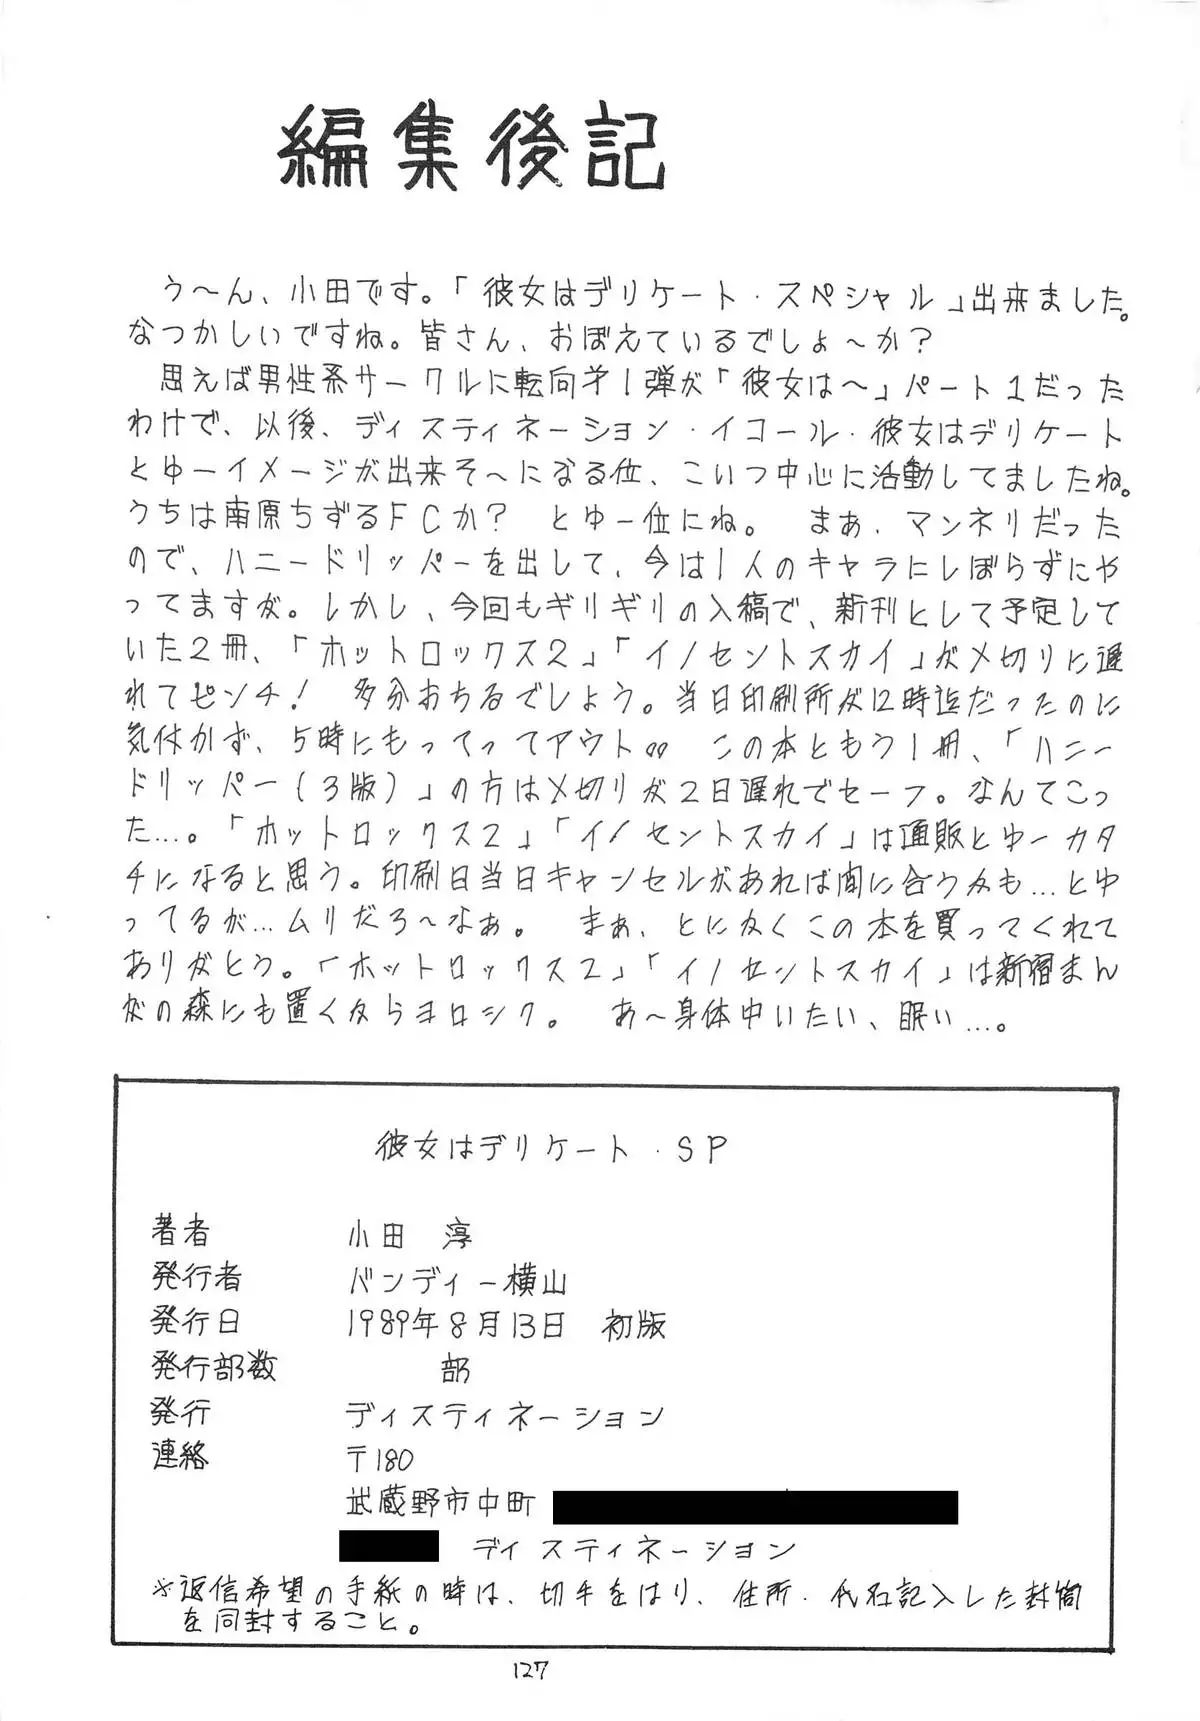 編集後記
う〜ん、小田です。「彼女はデリケート・スペシャル」出来ました。
なつかしいですね。皆さん、おぼえているでしょ〜か？
思えば男性系サークルに転向才1弾が「彼女は〜」パート1だった
わけで、以後、ディスティネーション・イコール・彼女はデリケート
とゆーイメージが出来そ〜になる位、こいつ中心に活動してましたね。
うちは南原ちずるFCか？　とゆー位にね。　まあ、マンネリだった
ので、ハニードリッパーを出して、今は1人のキャラにしぼらずにや
ってますが。しかし、今回もギリギリの入稿で、新刊として予定して
いた2冊、「ホットロックス2」「イノセントスカイ」が〆切りに遅
れてピンチ！　多分おちるでしょう。当日印刷所が12時迄だったのに
気付かず、5時にもってってアウト〃　この本ともう1冊、「ハニー
ドリッパー(3版)」の方は〆切りが2日遅れでセーフ。なんてこっ
た…。「ホットロックス2」「イノセントスカイ」は通販とゆーカタ
チになると思う。印刷日当日キャンセルがあれば間に合うかも…とゆ
ってるが…ムリだろ〜なぁ。　まぁ、とにかくこの本を買ってくれて
ありがとう。「ホットロックス2」「イノセントスカイ」は新宿まん
がの森にも置くからヨロシク。　あ〜身体中いたい、眠い…。
彼女はデリケート・SP
著者　小田　淳
発行者　バンディー横山
発行日　1989年8月13日　初版
発行部数　部
発行　ディスティネーション
連絡　〒180
武蔵野市中町
ディスティネーション
※返信希望の手紙の時は、切手をはり、住所・氏名記入した封筒
を同封すること。
127